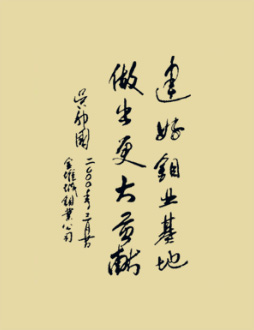 建好钼业基地
做出更大贡献
吴邦国
二〇〇〇年三月廿
金堆城钼業公司